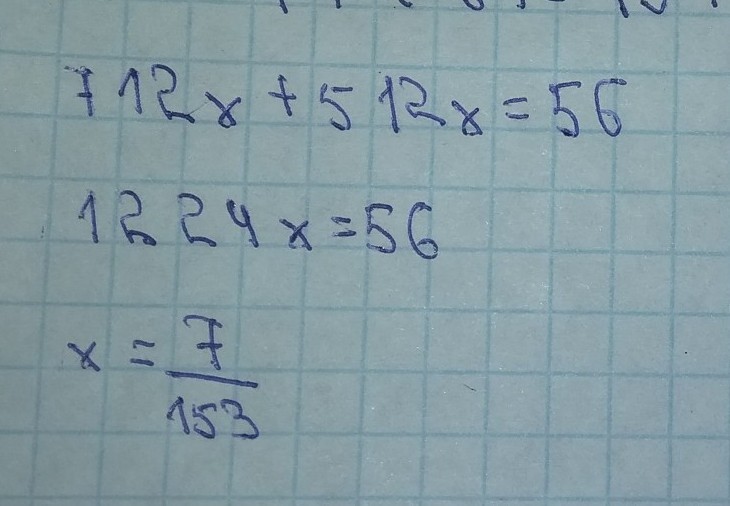 712x + 512x = 56
1224x = 56
x = 7/153